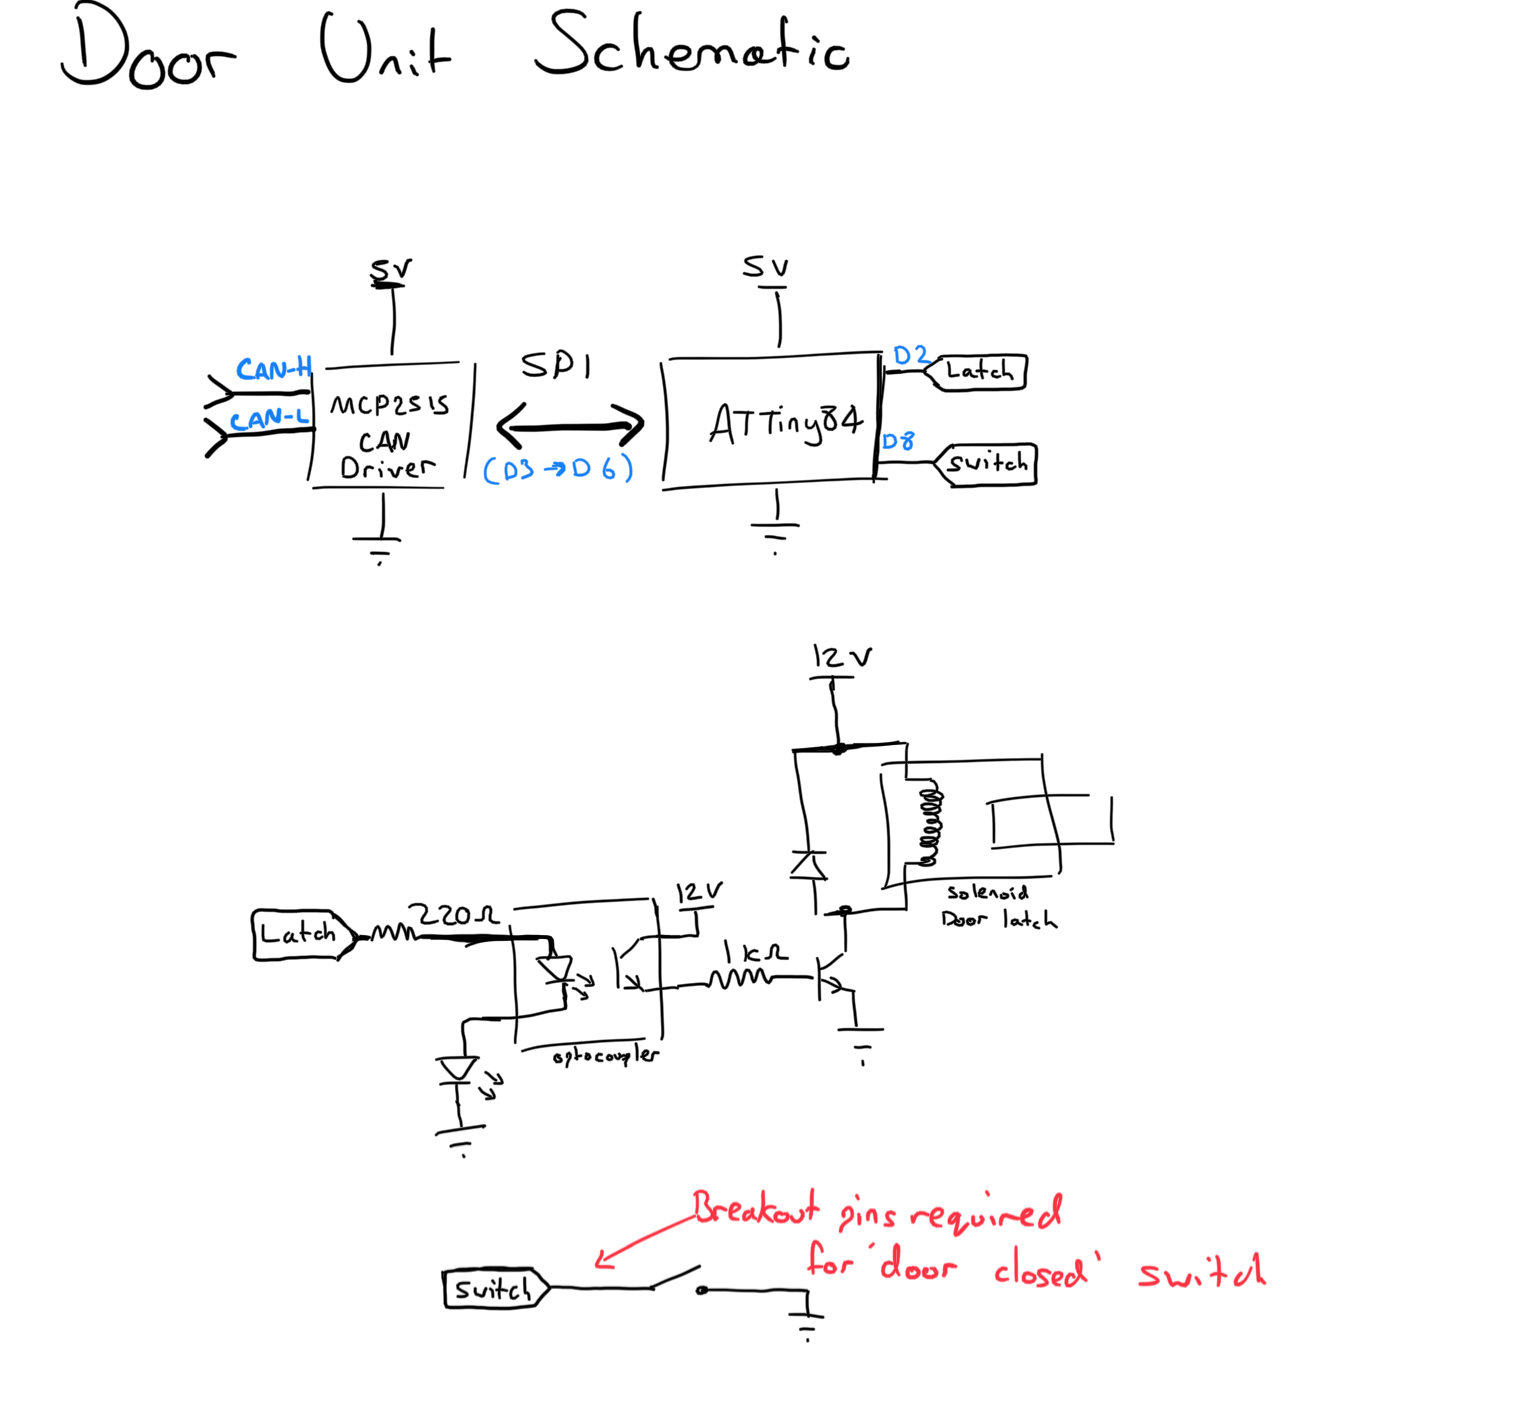 Door Unit Schematic
5V
5V
CAN-H
CAN-L
MCP2515
CAN
Driver
SPI
(D3→D6)
ATTiny84
D2
Latch
D8
switch
12V
Solenoid
Door latch
Latch
220Ω
12V
1kΩ
optocoupler
Breakout pins required
for 'door closed' switch
Switch